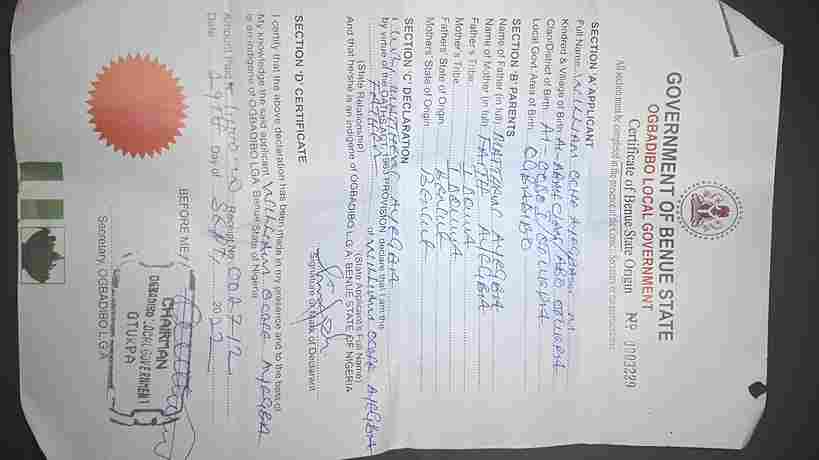 GOVERNMENT OF BENUE STATE
OGBADIBO LOCAL GOVERNMENT
Certificate of Benue State Origin Nº 0003229
All sections must be completed in the presence of the
SECTION 'A' APPLICANT
Full Name: WILLIAM OCHE AYEGBA
Kindred & Village of Birth:
Clan/District of Birth:
Local Govt. Area of Birth: OGBADIBO
SECTION 'B' PARENTS
Name of Father (in full) AYEGBA
Name of Mother (in full) FAITH AYEGBA
Father's Tribe: IDOMA
Mother's Tribe: IDOMA
Fathers' State of Origin BENUE
Mothers' State of Origin BENUE
SECTION 'C' DECLARATION
I AYEGBA
by virtue of the OATHS ACT 1963 PROVISION, declare that I am the
FATHER of WILLIAM OCHE AYEGBA
(State Relationship) (State Applicant's Full Name)
And that he/she is an indigene of OGBADIBO L.G.A. BENUE STATE OF NIGERIA
Signature or Mark of Declarant
SECTION 'D' CERTIFICATE
I certify that the above declaration has been made in my presence and to the best of
My knowledge the said applicant WILLIAM OCHE AYEGBA
is an indigene of OGBADIBO LGA, Benue State of Nigeria
Amount Paid Receipt No. 002712
Date: 29TH Day of SEPT, 2022
BEFORE ME
CHAIRMAN
OGBADIBO LOCAL GOVERNMENT
OTUKPA
Secretary, OGBADIBO L.G.A